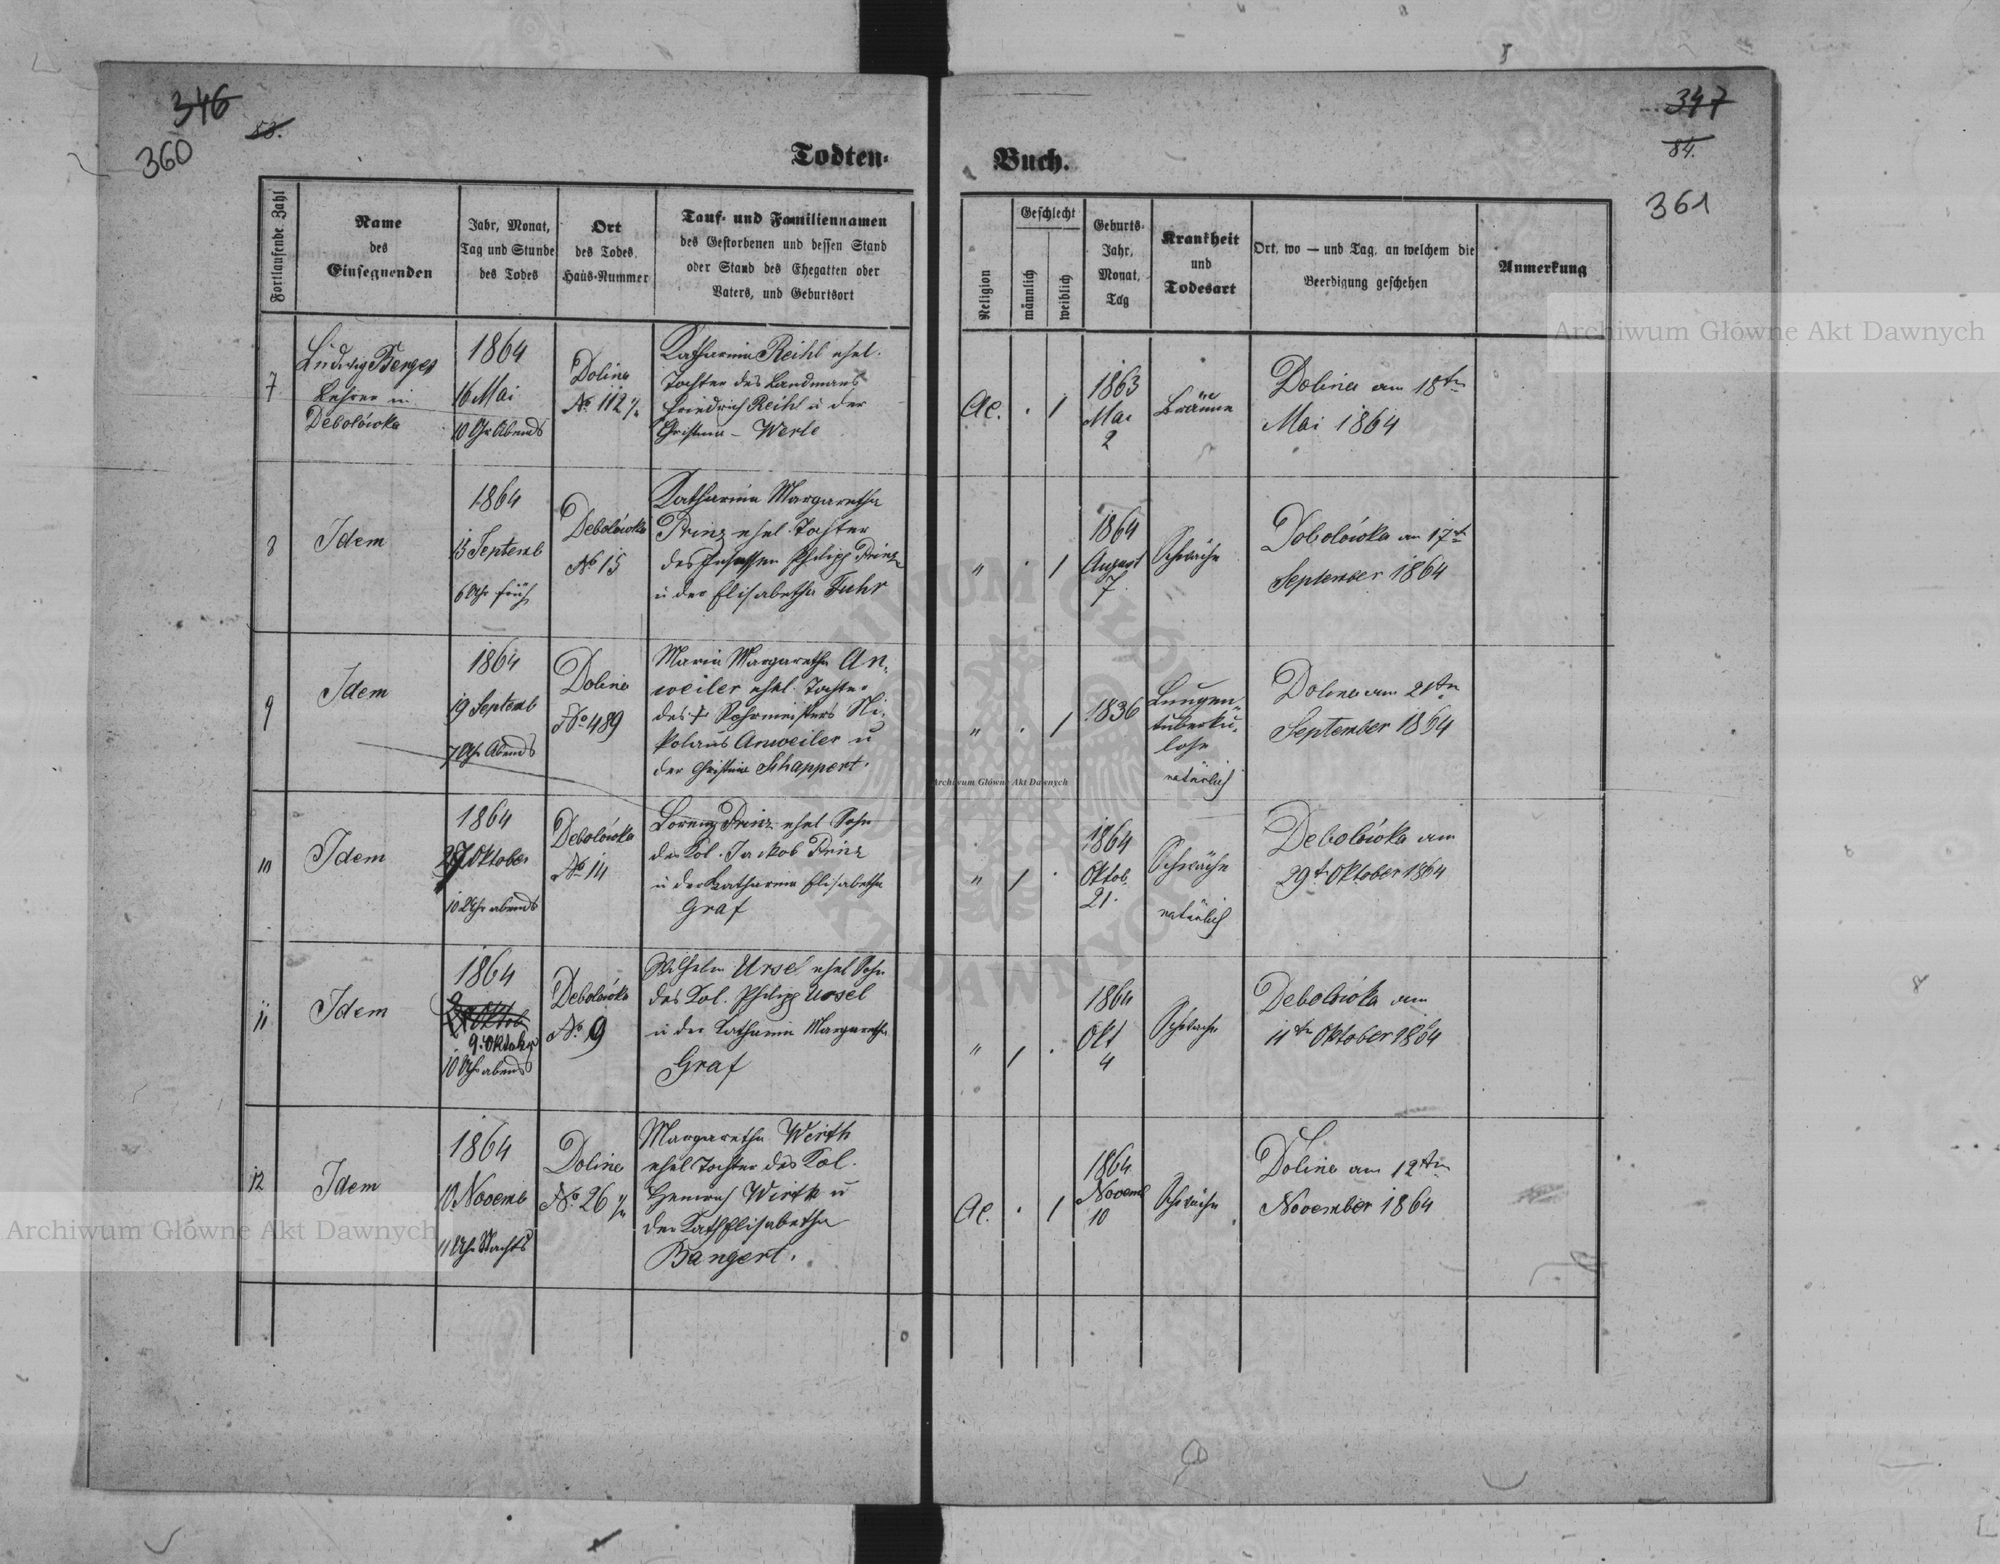 346
53.
360
347
84.
361
Todten-
Buch.
Fortlaufende Zahl
Name
des
Einsegnenden
Jahr, Monat,
Tag und Stunde
des Todes
Ort
des Todes,
Haus-Nummer
Tauf- und Familiennamen
des Gestorbenen und dessen Stand
oder Stand des Ehegatten oder
Vaters, und Geburtsort
Religion
Geschlecht
männlich
weiblich
Geburts-
Jahr,
Monat,
Tag
Krankheit
und
Todesart
Ort, wo — und Tag, an welchem die
Beerdigung geschehen
Anmerkung
7
Ludwig Berges
Lehrer in
Debolówka
1864
16 Mai
10 Uhr Abends
Dolina
No. 112 1/2
Katharina Reihl ehel.
Tochter des Landmanns
Friedrich Reihl u der
Christina – Werle
Ae. . 1
1863
Mai
2
Bräune
Dolina am 18ten
Mai 1864
8
Idem
1864
15 Septemb
6 Uhr früh
Debolówka
No 15
Katharina Margaretha
Prinz ehel. Tochter
des Insassen Philipp Prinz
u der Elisabetha Fuhr
" . 1
1864
August
7
Schwäche
Dobolówka am 17t
September 1864
9
Idem
1864
19 Septemb
7 Uhr Abends
Dolina
No 489
Maria Margaretha An-
weiler ehel. Tochter
des † Ni-
kolaus Anweiler u
der Christina Schappert.
" . 1
1836
Lungen-
tuberku-
lose
natürlich
Dolina am 21ten
September 1864
10
Idem
1864
27 Oktober
10 Uhr abends
Debolówka
No 14
Lorenz Prinz ehel Sohn
des Kol. Jackob Prinz
u der Katharina Elisabetha
Graf
" 1 .
1864
Oktob.
21.
Schwäche
natürlich
Debolówka am
29t Oktober 1864
11
Idem
1864
Oktob
9. Oktober
10 Uhr abends
Debolówka
No. 9
Wilhelm Ursel ehel Sohn
des Kol. Philipp Ursel
u der Katharina Margaretha
Graf
" 1 .
1864
Okt
4
Schwäche
Debolówka am
11ten Oktober 1864
12
Idem
1864
10 Novemb
11 Uhr Nachts
Dolina
No. 26 1/2
Margaretha Wirth
ehel Tochter des Kol.
Heinrich Wirth u
der Kath Elisabetha
Bangert.
Ae. . 1
1864
Novemb
10
Schwäche
Dolina am 12ten
November 1864
Archiwum Główne Akt Dawnych
Archiwum Główne Akt Dawnych
Archiwum Główne Akt Dawnych